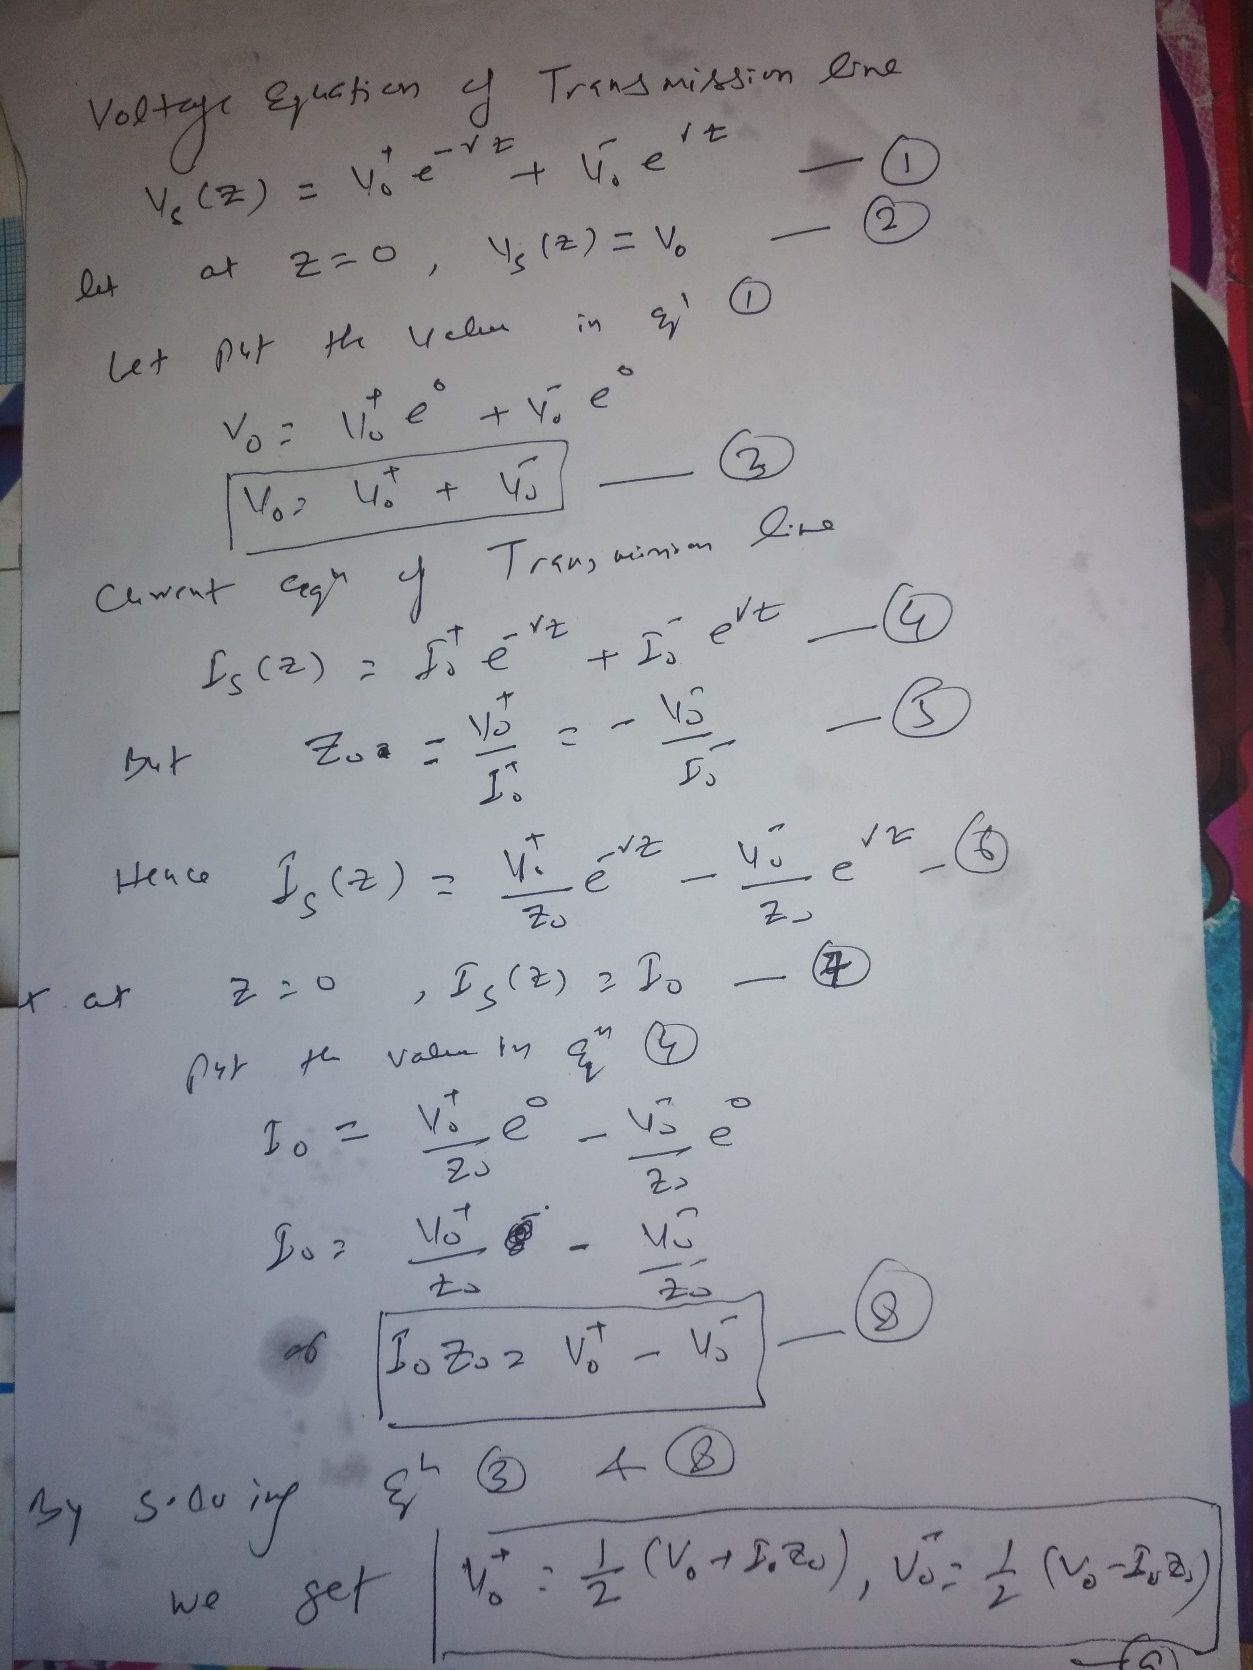 Voltage Equation of Transmission line
Vs(z) = V₀⁺ e^{-γz} + V₀⁻ e^{γz} — ①
let at z=0, Vs(z) = V₀ — ②
Let put the value in eqⁿ ①
V₀ = V₀⁺ e⁰ + V₀⁻ e⁰
V₀ = V₀⁺ + V₀⁻ — ③
Current eqⁿ of Transmission line
Is(z) = I₀⁺ e^{-γz} + I₀⁻ e^{γz} — ④
But Z₀ = V₀⁺/I₀⁺ = - V₀⁻/I₀⁻ — ⑤
Hence Is(z) = V₀⁺/Z₀ e^{-γz} - V₀⁻/Z₀ e^{γz} — ⑥
at z=0, Is(z) = I₀ — ⑦
Put the value in eqⁿ ④
I₀ = V₀⁺/Z₀ e⁰ - V₀⁻/Z₀ e⁰
I₀ = V₀⁺/Z₀ - V₀⁻/Z₀
or I₀Z₀ = V₀⁺ - V₀⁻ — ⑧
By solving eqⁿ ③ & ⑧
we get V₀⁺ = 1/2 (V₀ + I₀Z₀), V₀⁻ = 1/2 (V₀ - I₀Z₀)
— ⑨